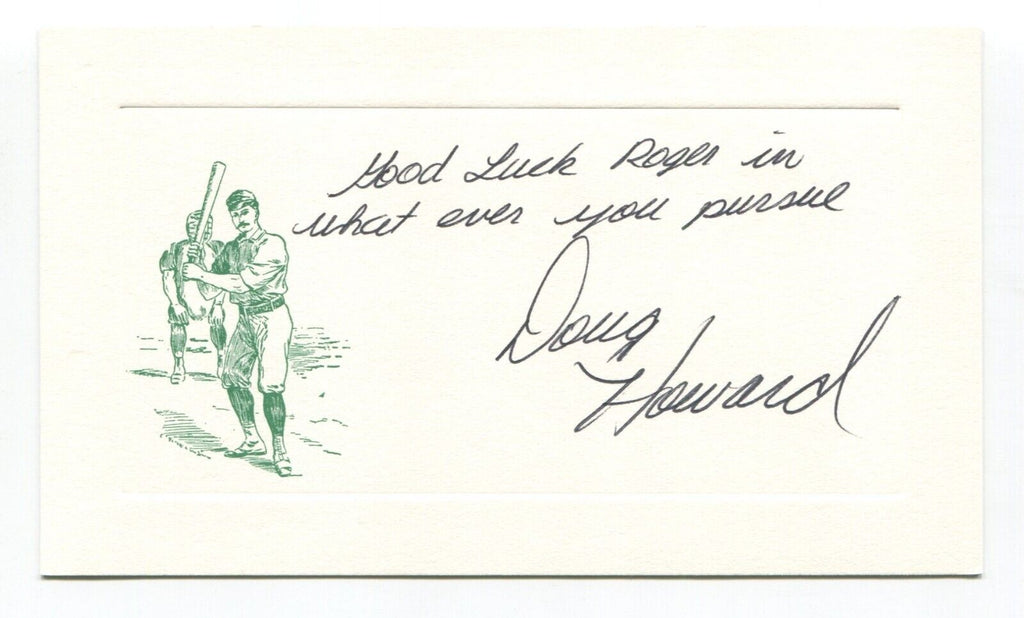 Good Luck Roger in
what ever you pursue
Doug
Howard